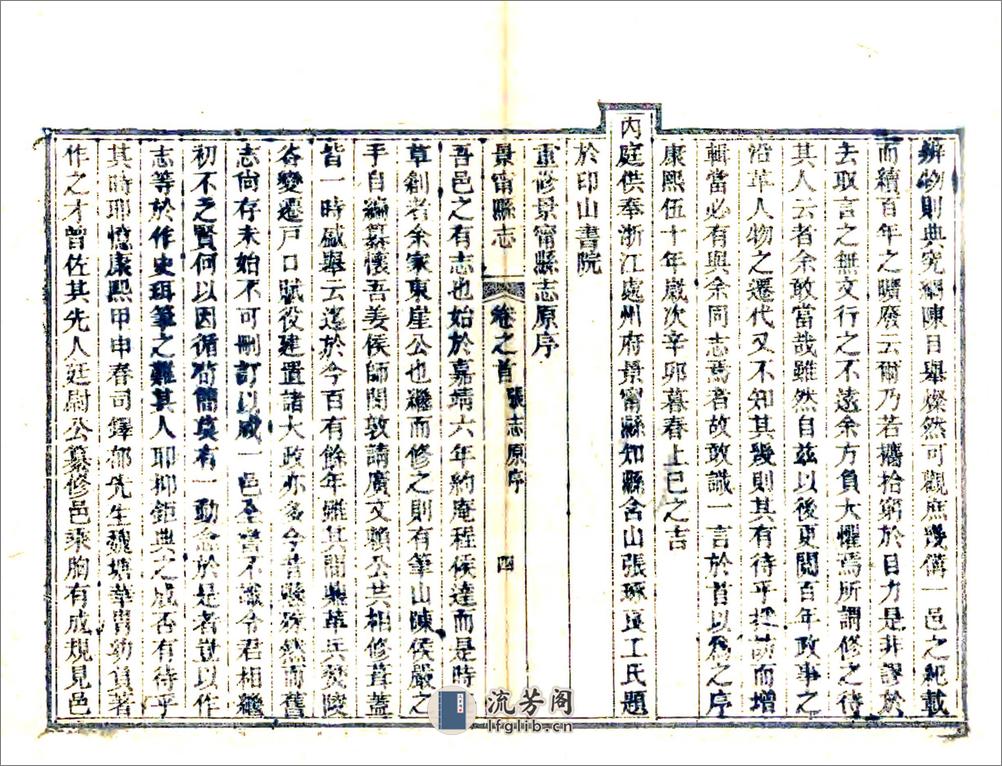 辨物則典究綱陳目舉燦然可觀庶幾備一邑之紀載
而續百年之曠廢云爾乃若攟拾窮於目力是非謬於
去取言之無文行之不遠余方負大懼焉所謂修之待
其人云者余敢當哉雖然自茲以後更閱百年政事之
沿革人物之遷代又不知其幾則其有待乎採訪而增
輯當必有與余同志焉者故敢識一言於首以為之序
康熙伍十年歲次辛卯暮春上巳之吉
內庭供奉浙江處州府景甯縣知縣含山張琢良工氏題
於印山書院
重修景甯縣志原序
景甯縣志 卷之首 張志原序 四
吾邑之有志也始於嘉靖六年約庵程侯達而是時
草創者余家東崖公也繼而修之則有筆山陳侯嚴之
手自編纂懷吾姜侯師閔敦請廣文賴公共相修葺蓋
皆一時盛舉云迄於今百有餘年雖其間興革兵燹陵
谷變遷戶口賦役建置諸大政亦多今昔懸殊然而舊
志尚存未始不可刪訂以成一邑全書不識令君相繼
初不之賢何以因循苟簡莫有一動念於是者豈以作
志等於作史珥筆之難其人耶抑鉅典之成否有待乎
其時耶憶康熙甲申春司鐸郁先生魏塘華胄夙負著
作之才曾佐其先人廷尉公纂修邑乘胸有成規見邑
流芳阁
lfglib.cn